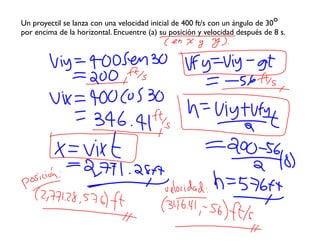 Un proyectil se lanza con una velocidad inicial de 400 ft/s con un ángulo de 30º
por encima de la horizontal. Encuentre (a) su posición y velocidad después de 8 s.
(en x y y).
Viy = 400 Sen 30
= 200 ft/s
Vix = 400 Cos 30
= 346.41 ft/s
x = vixt
= 2,771.28ft
Posición:
(2,771.28, 576) ft
Vfy = Viy - gt
= -56 ft/s
h = Viy + Vfy t
2
= 200 - 56 (8)
2
h = 576ft
velocidad:
(346.41, -56) ft/s